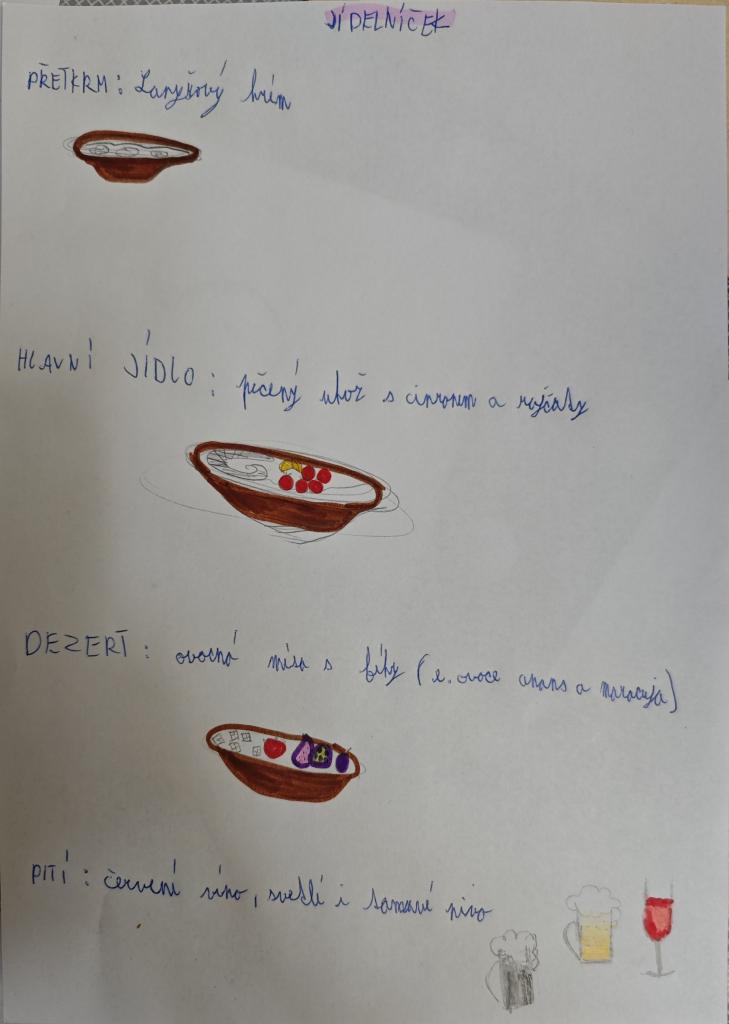 JÍDELNÍČEK
PŘETKRM: Lanýžový krém
HLAVNÍ JÍDLO: pečený úhoř s citronem a rajčaty
DEZERT: ovocná mísa s fíky (e. ovoce ananas a maracuja)
PITÍ: červení víno, světlí i tamavé pivo